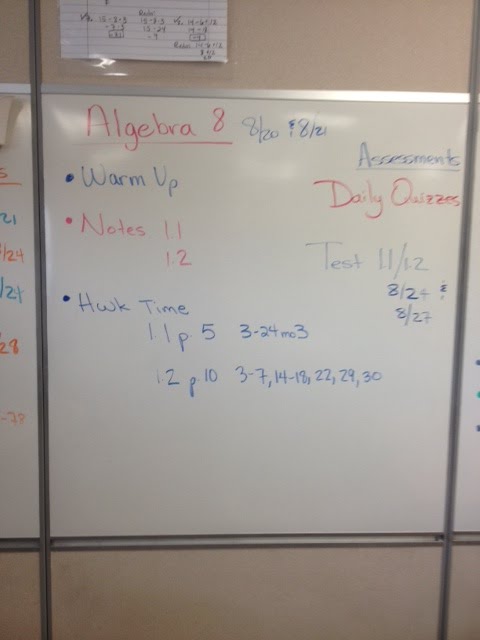 Algebra 8 8/20 & 8/21
Assessments
• Warm Up
Daily Quizzes
• Notes 1.1
1.2
Test 1.1/1.2
8/24 &
8/27
• Hwk Time
1.1 p. 5 3-24 mo3
1.2 p. 10 3-7, 14-18, 22, 29, 30
21
/24
/24
28
-78